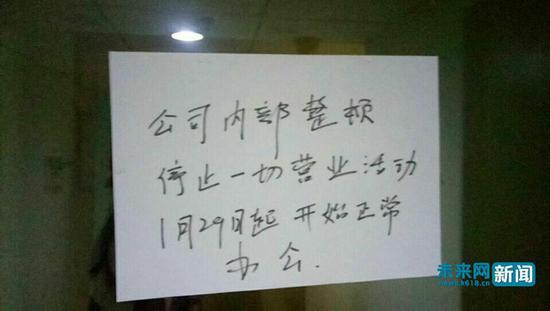 公司内部整顿
停止一切营业活动
1月29日起 开始正常
办公.
未来网 新闻
www.k618.cn